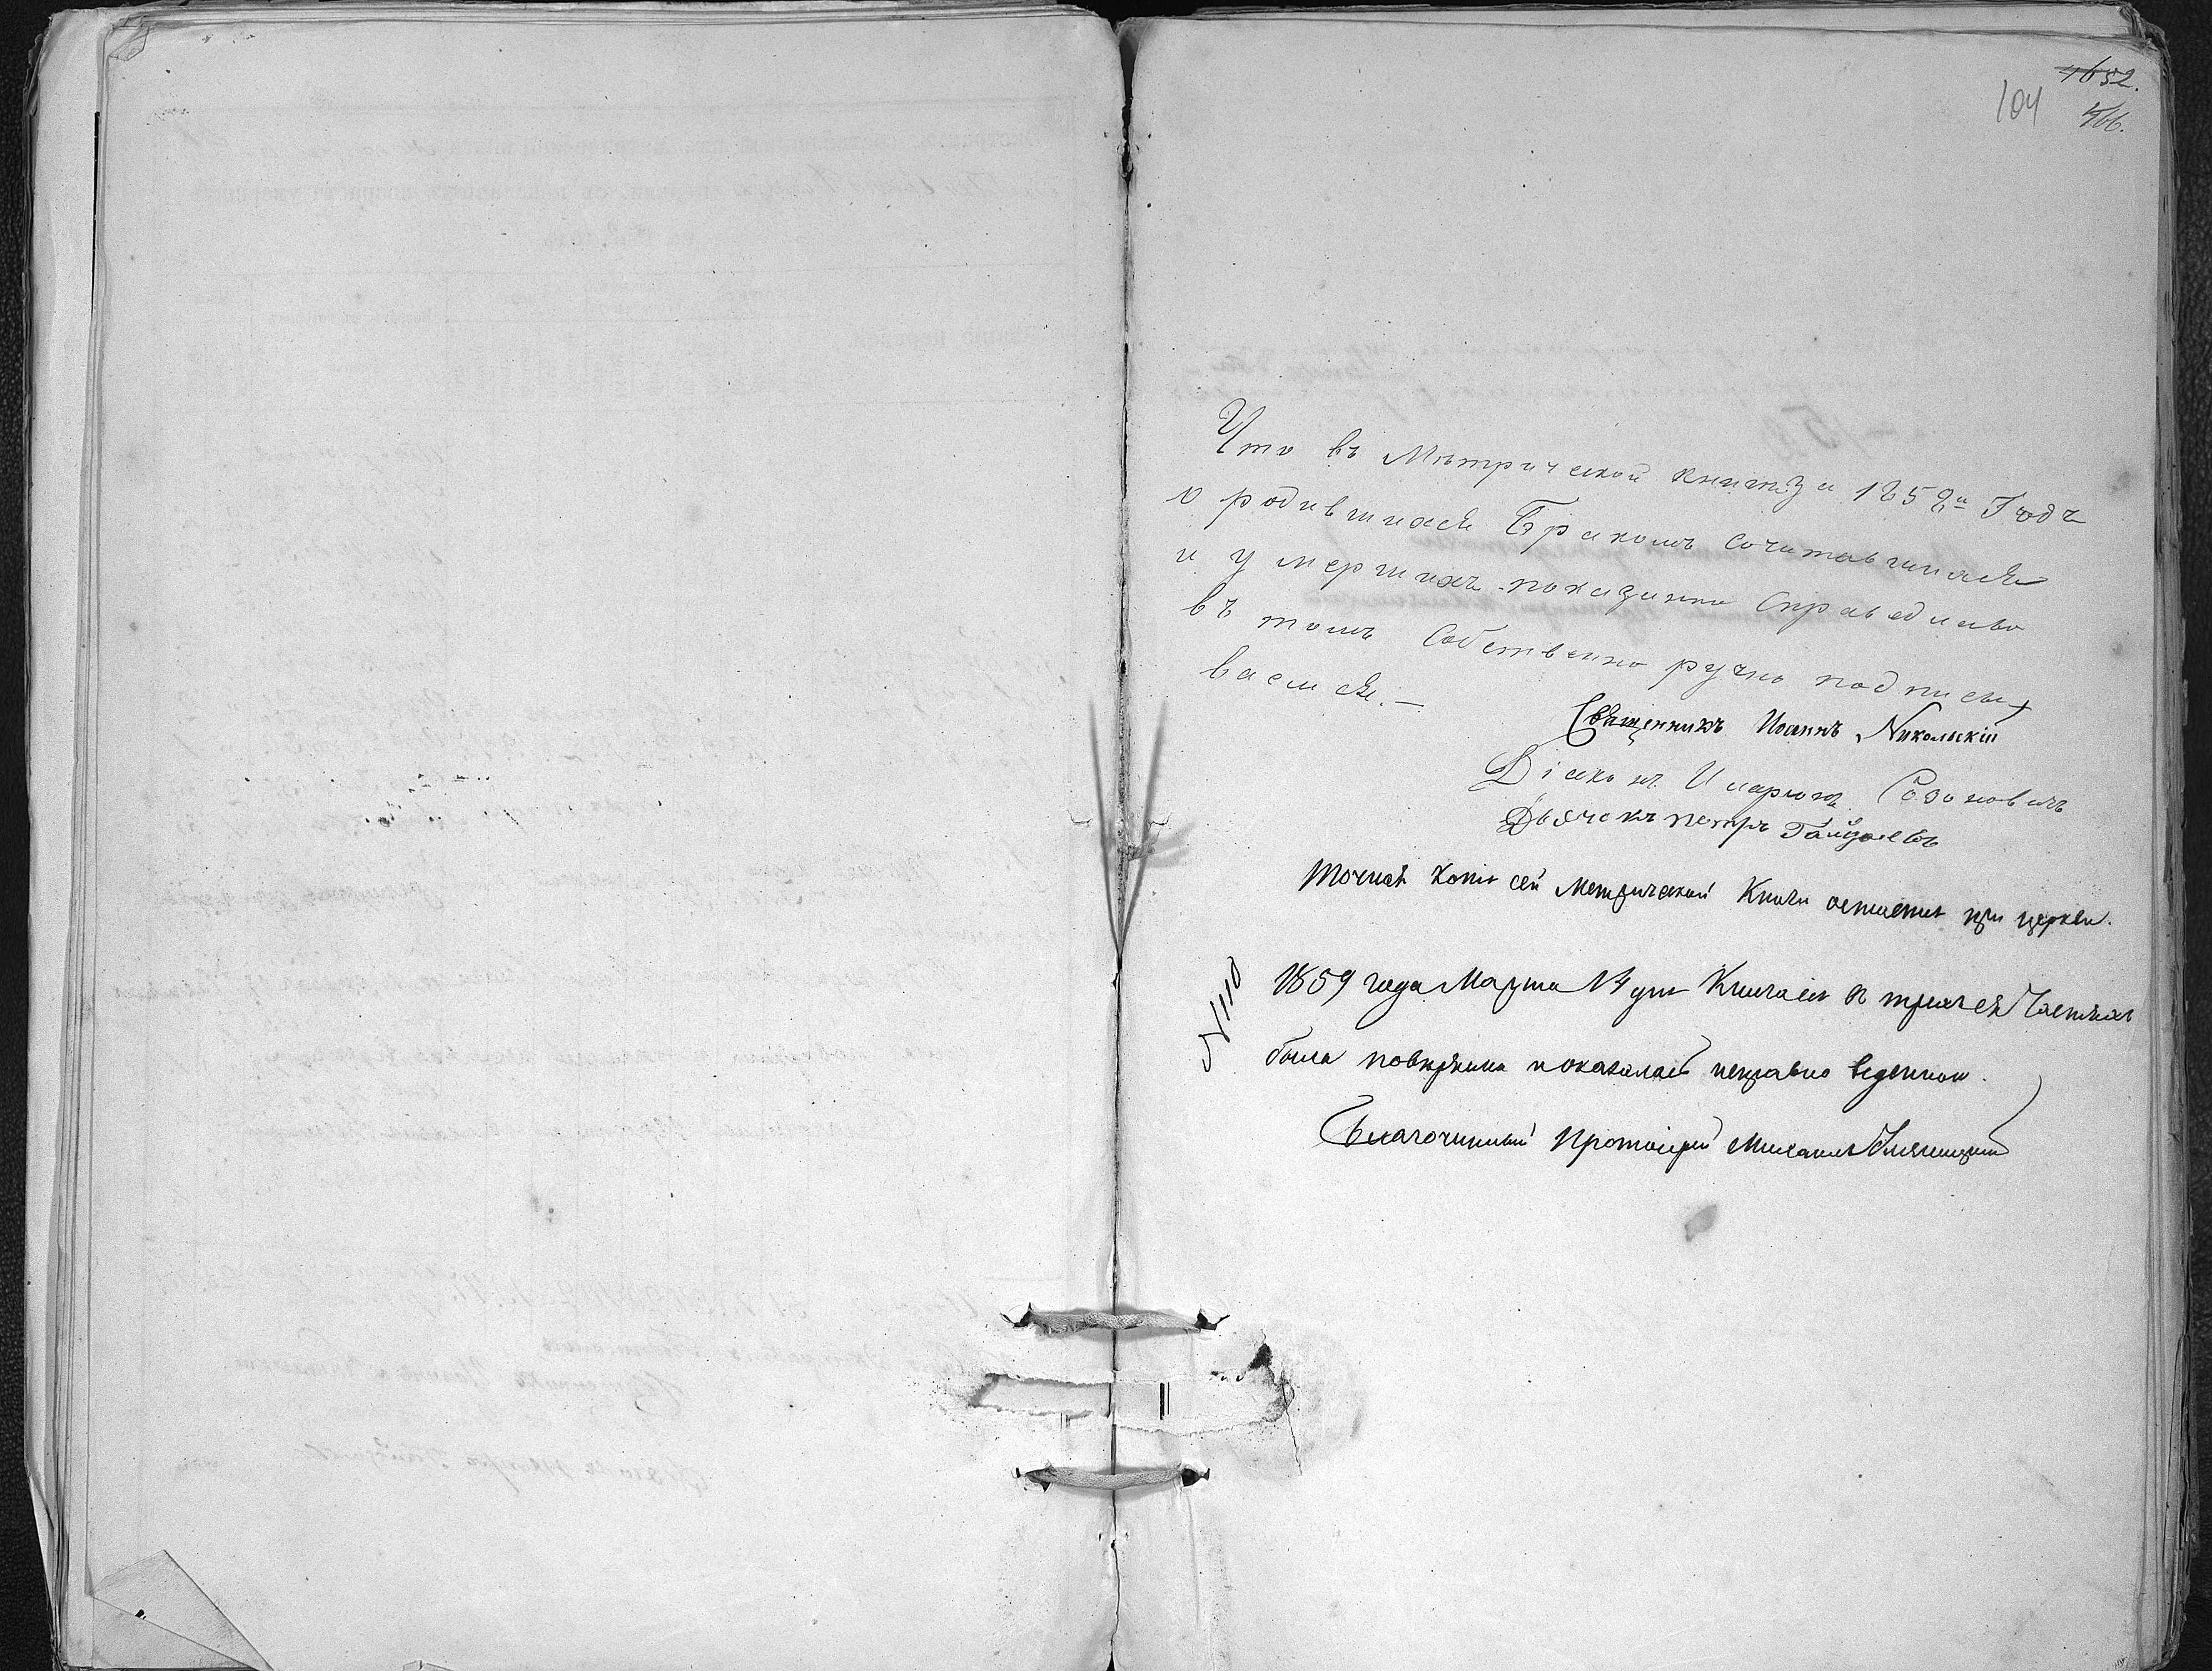 1652.
104 466.
Что въ Мѣтрической книги за 1858й Годъ
о родившихся Бракомъ сочитавшихся
и умершихъ показанно Справедливо
въ томъ Собственно ручно подписы
ваемся. —
Священникъ Иоаннъ Никольскій
Діаконъ Иларіонъ Созоновичъ
Дьячекъ Петръ Гайдуковъ
Точная копія сей Метрической Книги оставлена при церкви.
№ 1110
1859 года Марта 14 дня Книга сія въ трехъ ея Частяхъ
была повѣряема и оказалась исправно веденною.
Благочинный Протоіерей Михаилъ